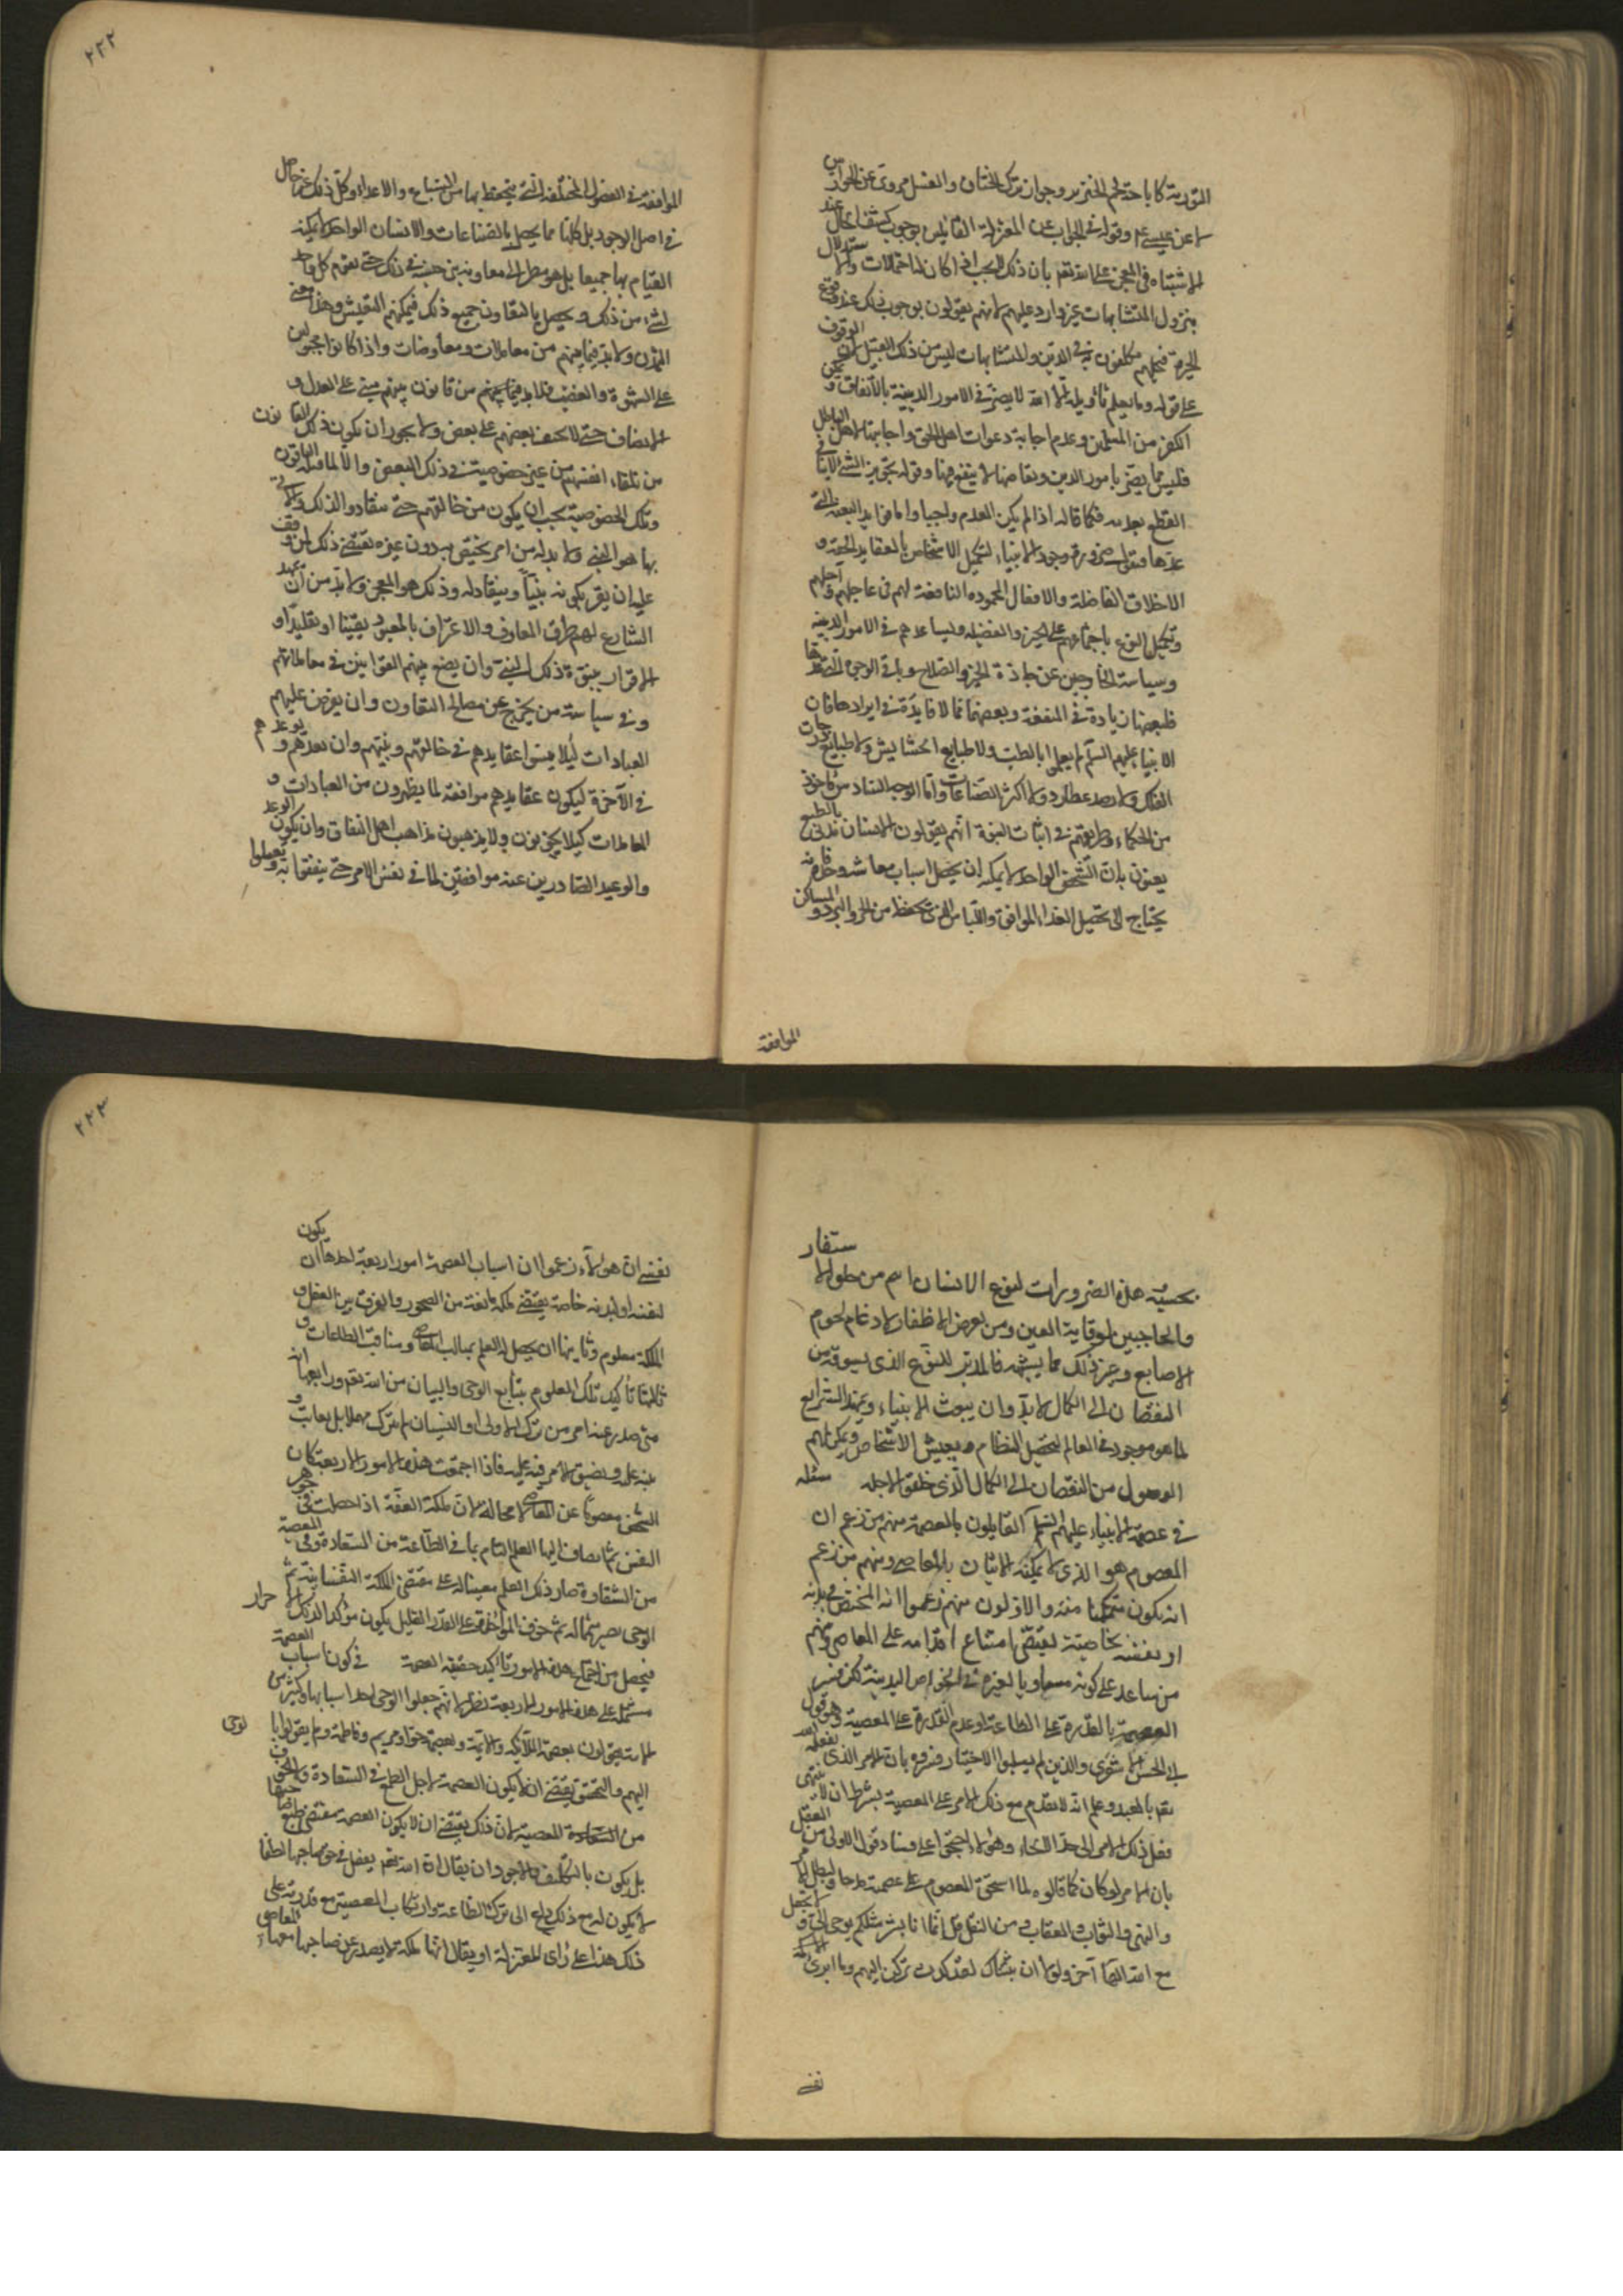 التورية كاباحة لحم الخنزير وجواز ترك الختان والغسل مروى عن الحواريين
لا عن عيسى عم وقوله فى الجواب عن المعتزلة القائلين بوجوب كشف الحال عند
الاشتباه فى المعجز على الله تعم بان ذلك لا يجب اذ كان الاحتمالات والاستدلال
بنزول المتشابهات غير وارد عليهم لانهم يقولون بوجوب ذلك عند وقوع
الحيرة فيما هم مكلفون به فى الدين والمتشابهات ليس من ذلك القبيل لان الوقوف
على قوله وما يعلم تأويله الا الله لا يضر فى الامور الدينية بالاتفاق و تمكين
الكفر من المسلمين وعدم اجابة دعوات اهل الحق واجابتها لاهل الباطل
فليس مما يضر بامور الدين
القطع بعدمه فكما قاله اذا لم يكن العدم واجبا واما فوايد البعثة التى
عدها فنقول ضرورة وجود الانبياء لتكميل الاشخاص بالعقايد الحقة و
الاخلاق الفاضلة والافعال المحمودة النافعة لهم فى عاجلهم وآجلهم
وتكميل النوع باجتماعهم على الخير والفضيلة وتساعدهم فى الامور الدينية
وسياسة الخارجين عن جادة الخير والصلاح وباقى الوجوه التى ذكرها
فلبعضها زيادة فى المنفعة وبعضها مما لا فايدة فى ايرادها فان
الانبياء عليهم السلم لم يعلموا بالطب ولا طبايع الحشايش ولا طبايع درجات
الفلك ولا رصد عطارد ولا اكثر الصناعات واما الوجه السادس فمأخوذ
من الحكماء وطريقتهم فى اثبات النبوة انهم يقولون الانسان مدنى بالطبع
يعنون بان الشخص الواحد لا يمكنه ان يحصل اسباب معاشه وحده فانه
يحتاج الى تحصيل الغذاء الموافق واللباس الذى يحفظه من الحر والبرد والمساكن
الموافقة
٢٢٢
الموافقة فى الفصول المختلفة التى يتحفظ بها من السباع والاعداء وكل ذلك غير حاصل
فى اصل الوجود بل كلها مما يحصل بالصناعات والانسان الواحد لا يمكنه
القيام بها جميعا بل هو مضطر الى معاونة بنى جنسه فى ذلك حتى يقوم كل واحد
لشئ من ذلك ويحصل بالتعاون جميع ذلك فيمكنهم التعيش وهذا معنى
التمدن ولا بد فيما بينهم من معاملات ومعاوضات واذا كانوا مجبولين
على الشهوة والغضب فلا بد فيما بينهم من قانون بينهم مبنى على العدل و
الانصاف حتى لا يحيف بعضهم على بعض ولا يجوز ان يكون ذلك القانون
من تلقاء انفسهم من غير خصوصية فى ذلك البعض والا لما قبله الباقون
وتلك الخصوصية يجب ان يكون من خالقهم حتى ينقادوا لذلك والآتى
بها هو النبى ولا بد له من امر يختص به دون غيره يقتضى ذلك لمن وقف
عليه ان يقر بكونه نبيا وينقاد له وذلك هو المعجز ولا بد من ان يمهد
الشارع لهم طرق المعارف والاعتراف بالمعبود يقينا او تقليدا و
الاقرار بنبوة ذلك النبى وان يضع بينهم القوانين فى معاملاتهم
وفى سياسة من يخرج عن مصالح التعاون وان يفرض عليهم
العبادات ليلا ينسوا عقايدهم فى خالقهم ونبيهم وان يعدهم ويوعدهم
فى الآخرة ليكون عقايدهم موافقة لما يظهرون من العبادات و
المعاملات كيلا يخونون ولا يذهبون مذاهب اهل النفاق وان يكون الوعد
والوعيد الصادرين عنه موافقين لما فى نفس الامر حتى يثقوا به ويعملوا
بحسبه هذه الضروريات لنوع الانسان اهم من خلق الاشفار
والحاجبين لوقاية العين ومن تعريض الاظفار لادعام لحوم
الاصابع وغير ذلك مما يشبهه فالمدبر للنوع الذى يسوقه من
النقصان الى الكمال لا بد وان يبعث الانبياء ويمهد الشرايع
لما هو موجود فى العالم ليحصل النظام ويعيش الاشخاص ويمكن لهم
الوصول من النقصان الى الكمال الذى خلقوا لاجله مسئله
فى عصمة الانبياء عليهم السلم القايلون بالعصمة منهم من زعم ان
المعصوم هو الذى لا يمكنه الاتيان بالمعاصى ومنهم من زعم
انه يكون متمكنا منه والاولون منهم زعموا انه المختص فى بدنه
او نفسه بخاصية تقتضى امتناع اقدامه على المعاصى ومنهم
من ساعد على كونه مساويا لغيره فى الخواص البدنية لكن فسر
العصمة بالقدرة على الطاعة وعدم القدرة على المعصية وهو قول
ابى الحسن الاشعرى والذين لم يسلبوا الاختيار فسروه بانه الامر الذى يفعله الله
تعم بالعبد وعلم انه لا يقدم مع ذلك الامر على المعصية بشرط ان لا ينتهى
فعل ذلك الامر الى حد الالجاء وهؤلاء احتجوا على فساد قول الاولين من العقل
بان الامر لو كان كما قالوه لما استحق المعصوم على عصمته مدحا ولبطل الامر
والنهى والثواب والعقاب ومن النقل قل انما انا بشر مثلكم يوحى الى و لا تجعل
مع الله الها آخر ولولا ان ثبتناك لقد كدت تركن اليهم وما ابرئ
نفسى
٢٢٣
نفسى ان هؤلاء زعموا ان اسباب العصمة امور اربعة احدها ان يكون
لنفسه او لبدنه خاصة يقتضى ملكة مانعة من الفجور والفرق بين الفعل و
الملكة معلوم وثانيها ان يحصل له العلم بمثالب المعاصى ومناقب الطاعات و
ثالثها تأكيد تلك العلوم بتتابع الوحى والبيان من الله تعم ورابعها انه
متى صدر عنه امر من ترك الاولى او النسيان لم يترك مهملا بل يعاتب و
ينبه عليه ويضيق الامر فيه عليه فاذا اجتمعت هذه الامور الاربعة كان
الشخص معصوما عن المعاصى لا محالة لان ملكة العفة اذا حصلت فى جوهر
النفس ثم انضاف اليها العلم التام بما فى الطاعة من السعادة وفى المعصية
من الشقاوة صار ذلك العلم معينا له على مقتضى الملكة النفسانية ثم
الوحى يصير متمما له ثم خوف المؤاخذة على القدر القليل يكون مؤكدا لذلك الاحتراز
فيحصل من اجتماع هذه الامور تاكيد حقيقة العصمة فى كون اسباب العصمة
مشتملة على هذه الامور الاربعة نظر لانهم جعلوا الوحى احد اسبابها وكثير من
الامة يقولون بعصمة الملائكة والائمة وبعصمة حوا ومريم وفاطمة ولم يقولوا بالوحى
اليهم والتحقيق يقتضى ان لا يكون العصمة لاجل الطمع فى السعادة والخوف
من المعصية لان ذلك يقتضى ان لا يكون العصمة مقتضى طباع صاحبها
بل يكون بالتكليف والاجود ان يقال ان الله تعم يفعل فى حق صاحبها لطفا
لا يكون له مع ذلك داع الى ترك الطاعة وارتكاب المعصية مع قدرته على
ذلك هذا على رأى المعتزلة او يقال انها ملكة لا يصدر عن صاحبها معها المعاصى